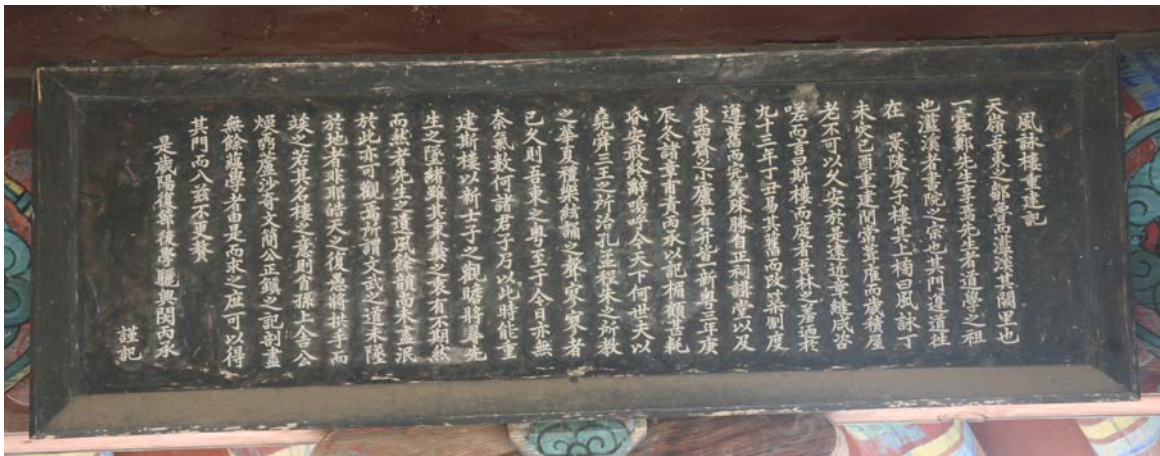 風詠樓重建記
天嶺吾東之鄒魯而灆溪其闕里也
一蠹鄭先生幸焉先生者道學之祖
也灆溪者書院之宗也其門道遵往
在 景陵庚子樓其上楣曰風詠丁
未灾己酉重建間嘗葺廣而歲積屋
老不可以久安於是遠近章縫咸咨
嗟而言曰斯樓而廢者吾林之羞迺於
九十三年丁丑易其舊而改築制度
遵舊而完美殊勝自正祠講堂以及
東西齋之小廬者幷皆一新粤三年庚
辰冬諸章甫責丙承以記楣顧昔耗
昏安敢終辭嗚呼今天下何世夫以
堯舜三王之所治孔孟程朱之所教
之華夏禮樂絃誦之聲寥寥者
已久則吾東之粤至于今日亦無
奈氣數何諸君子乃以此時能重
建斯樓以新士子之觀瞻將尋先
生之墜緖雖其秉彝之衷有不期然
而然者先生之遺風餘韻尙未盡泯
於此亦可觀焉所謂文武之道未墜
於地者非耶皓天之復急將拱手而
竢之若其名樓之意則有孫上舍公
煥翁蘆沙奇文簡公正鎭之記剖盡
無餘蘊學者由是而求之庶可以得
其門而入玆不更贅
是歲陽復節後學驪興閔丙承
謹記